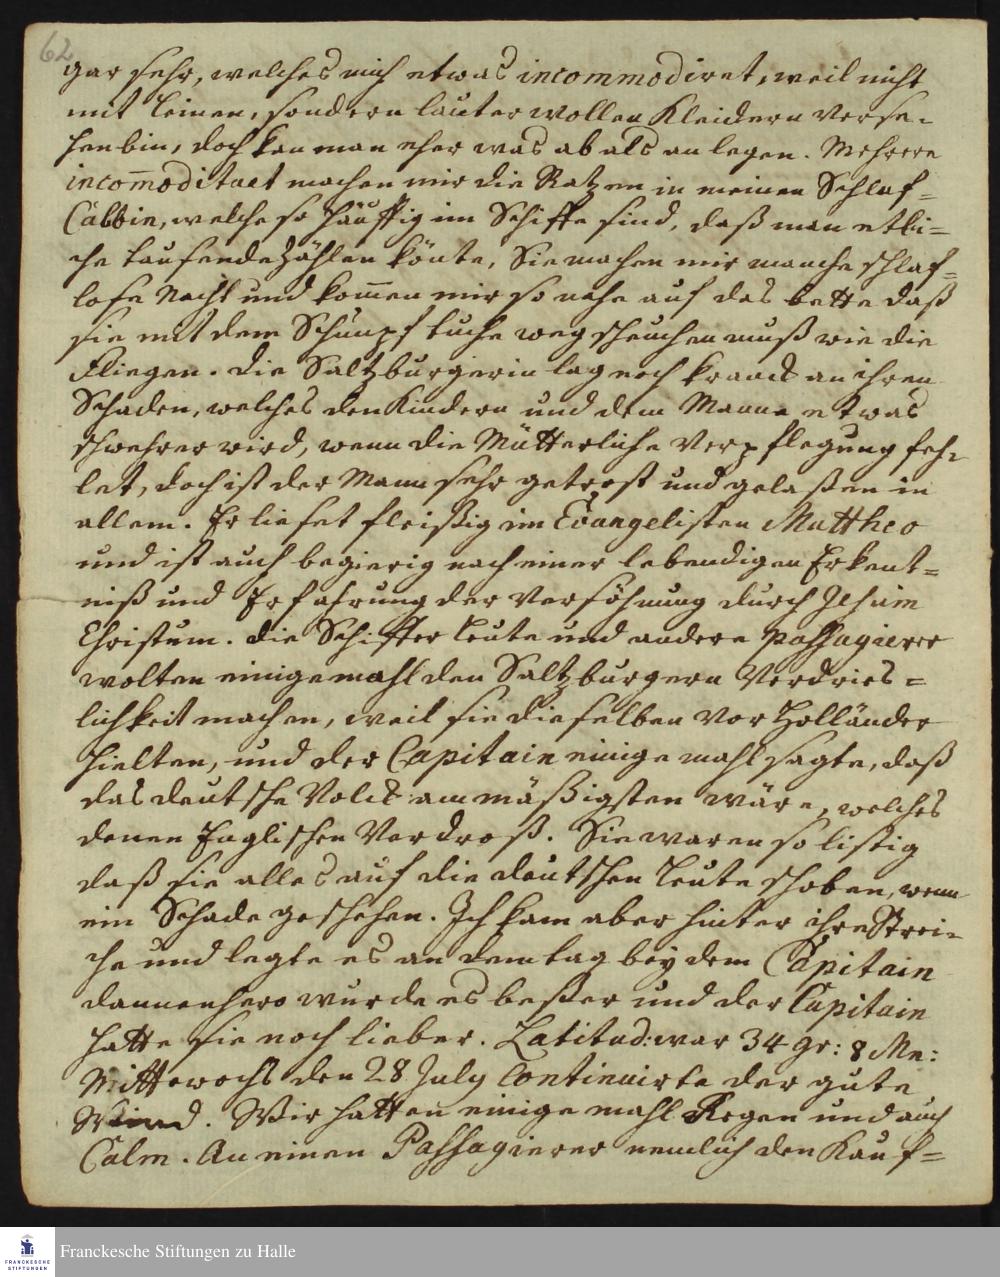 62
gar sehr, welches mich etwas incommodiret, weil nicht
mit leinen, sondern lauter wollen Kleidern verse-
hen bin, doch kan man eher was ab als an legen. Mehrere
incom̄oditaet machen mir die Ratzen in meinen Schlaf=
Cabbin, welche so häuffig im Schiffe sind, daß man etli=
che tausende zählen könte, Sie machen mir manche schlaf=
lose Nacht und kom̄en mir so nahe auf das bette daß
sie mit dem Schnupftuche weg scheuchen muß wie die
Fliegen. Die Saltzburgerin lag noch kranck an ihren
Schaden, welches den Kindern und dem Manne etwas
schwehrer wird, wenn die Mütterliche Verpflegung feh-
let, doch ist der Mann sehr getrost und gelaßen in
allem. Er lieset fleißig im Evangelisten Mattheo
und ist auch begierig nach einer lebendigen Erkent=
niß und Erfahrung der Versöhnung durch Jesum
Christum. Die Schiffer Leute und andere passagierer
wolten einige mahl den Saltzburgern Verdries=
lichkeit machen, weil sie dieselben vor Holländer
hielten, und der Capitain einige mahl sagte, daß
das deutsche Volck am mäßigsten wäre, welches
denen Englischen Verdroß. Sie waren so listig
daß sie alles auf die deutschen Leute schoben, wenn
ein Schade geschehen. Ich kam aber hinter ihre Strei-
che und legte es an dem tag bey dem Capitain
dannenhero wurde es beßer und der Capitain
hatte sie noch lieber. Latitud: war 34 gr: 8 Mn:
Mittewochs den 28 July Continuirte der gute
Wind. Wir hatten einige mahl Regen und auch
Calm. An einen Passagierer nemlich den Kauf=
FRANCKESCHE
STIFTUNGEN
Franckesche Stiftungen zu Halle